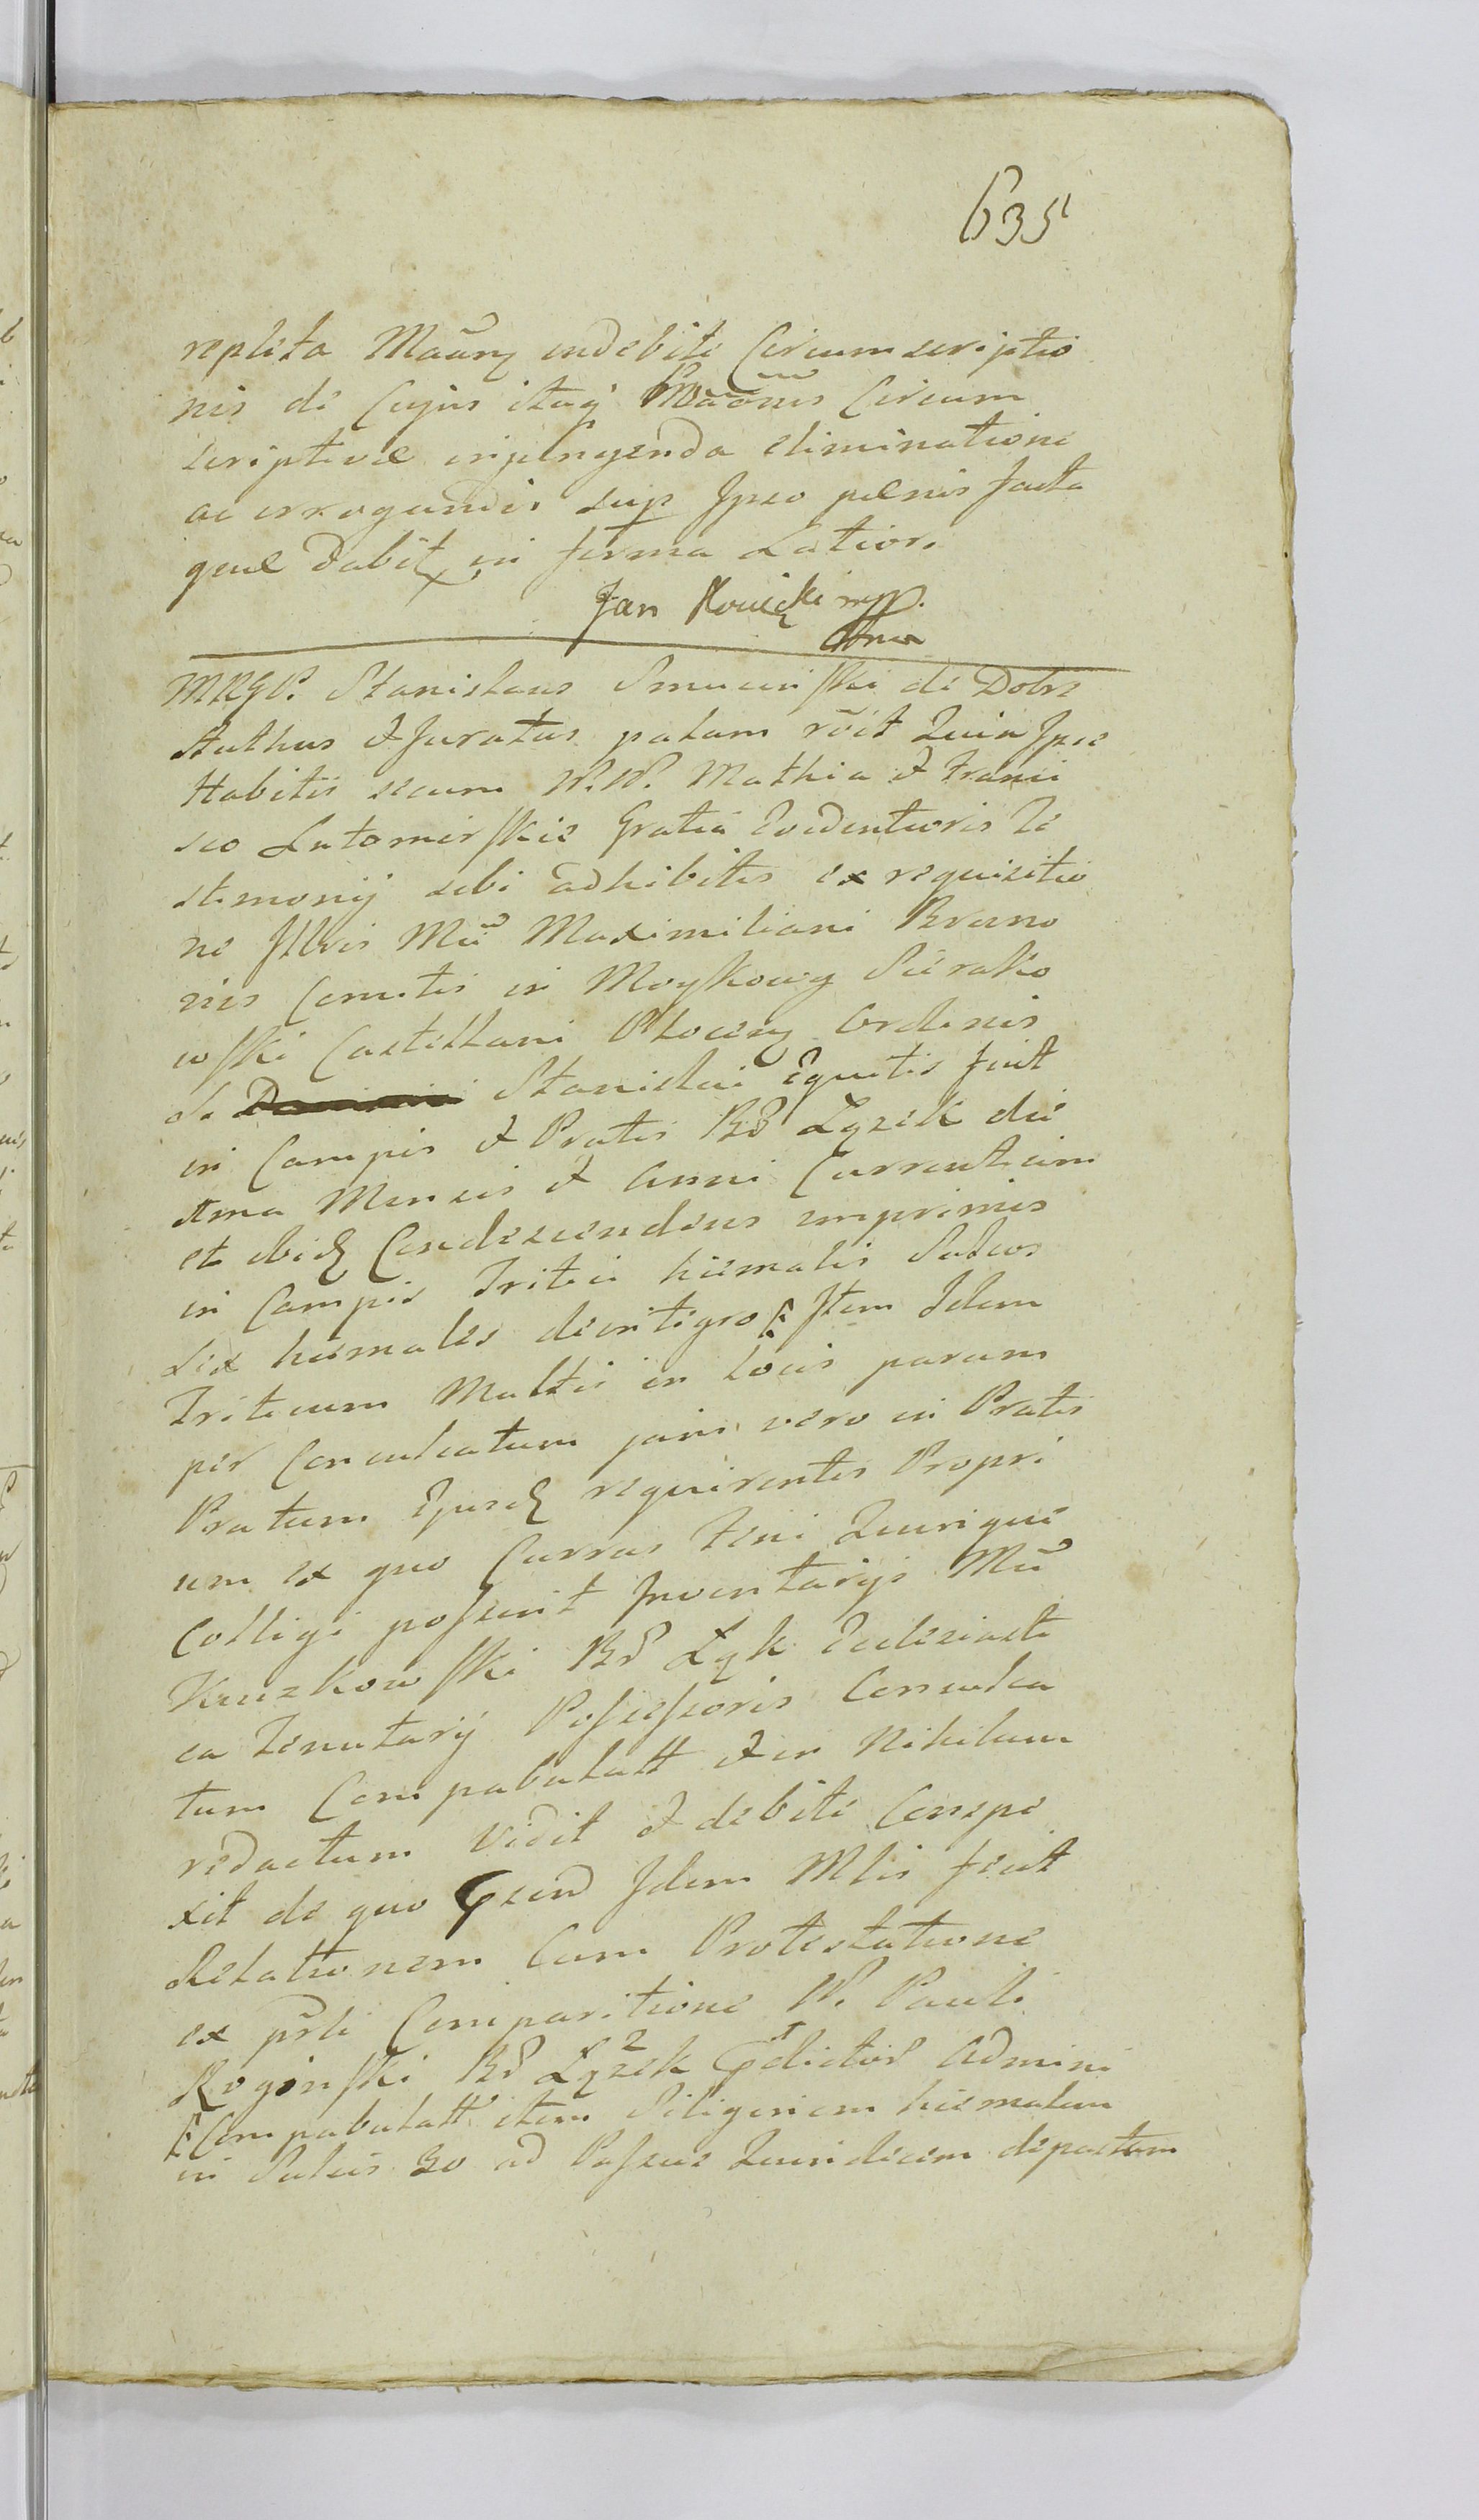 635
repleta Maãrz indebite Circumscriptio
nis de Cujus itaq Maõnis Circum
scriptivæ injungenda eliminatione
ac irrogandis sup Ipso pænis facta
quæ dabit in forma Latiori
Jan Nowicki mpp.
MRGP. Stanislaus Smuciński de Dobre
Authus et Juratus palam rõit Quia Ipse
Habitis secum N.N. Mathia et Franci
sco Lutomirskie Gratia Evidentioris Te
stimonij sibi adhibitis ex requisitio
ne Illris Mci Maximiliani Bruno
nis Comitis in Moykowy Sierako
wski Castellani Ploceng Ordinis
di Stanislai Equitis fuit
in Campis et Pratis Bd Łązek die
Ama Mensis et Anni Currentium
et ibid Condescendens imprimis
in Campis Tritici hiemalis Sulcos
Sex hiemales deintegro Item Idem
Triticum Multis in Locis parum
per Conculcatum jam vero in Pratis
Pratum Ejusd requirentis Propri
um ex quo Currus Feni Quinque
Colligi possint Inventarijs Mci
Kruszkowski Bd Łąk Ecclesiasti
ca Tenutarij Possessoris Conculca
tum Compabulatt et in Nihilum
redactum Vidit et debite Conspe
xit de quo Gsend Idem Mlis fecit
Relationem Cum Protestatione
ex pñti Comparitione N. Pauli
Rogiński Bd Łązek Gdictor Admini
Compabulatt item Siliginem hiemalem
in Sulcis 30 ad Passus Quindecim depastam